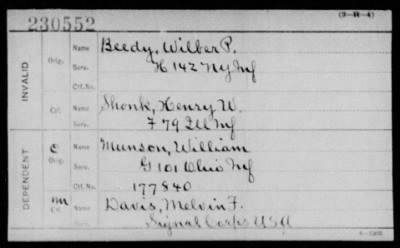 230552 (3-H-4)
INVALID
Orig. Name Beedy, Wilber P.
Serv. H 142 NY Inf
Ctf. No.
Ctf. Name Shonk, Henry W.
Serv. F 79 Ill Inf
DEPENDENT
C Orig. Name Munson, William
Serv. G 101 Ohio Inf
Ctf. No. 177840
m Ctf. Name Davis, Melvin F.
Serv. Signal Corps USA